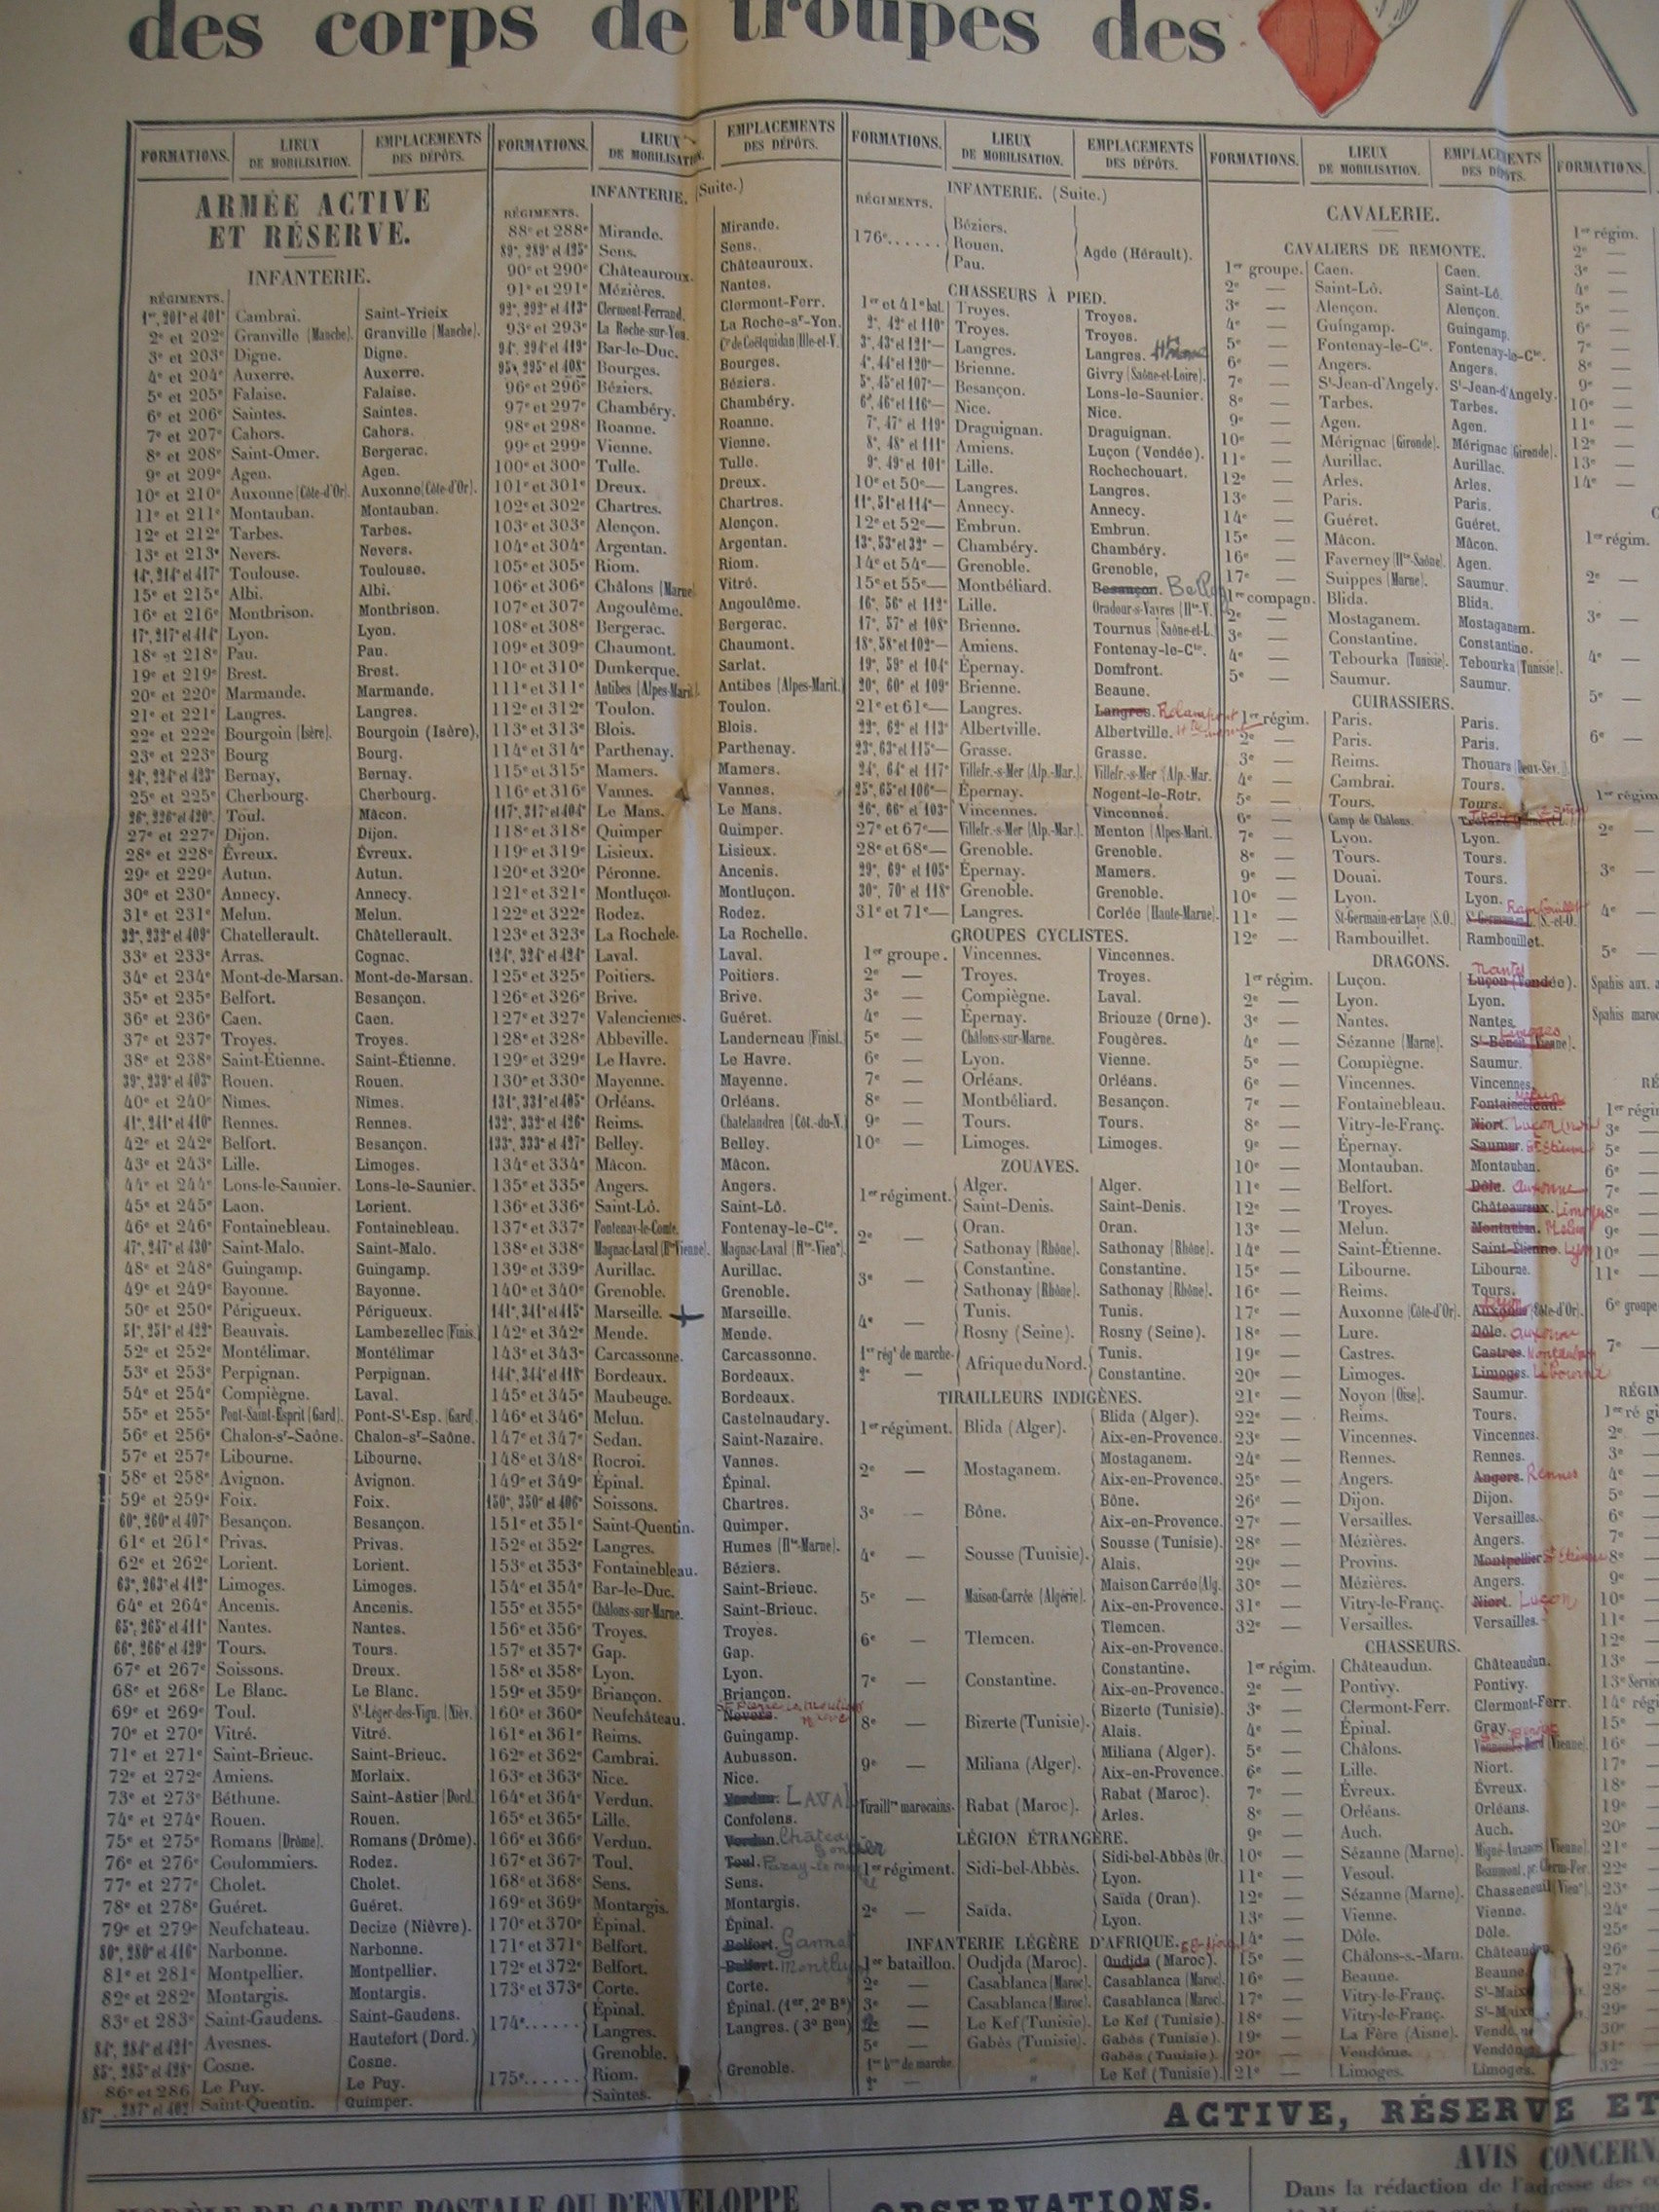 des corps de troupes des
FORMATIONS. LIEUX DE MOBILISATION. EMPLACEMENTS DES DÉPÔTS.
ARMÉE ACTIVE
ET RÉSERVE.
INFANTERIE.
RÉGIMENTS.
1er, 201e et 401e Cambrai. Saint-Yrieix
2e et 202e Granville (Manche). Granville (Manche).
3e et 203e Digne. Digne.
4e et 204e Auxerre. Auxerre.
5e et 205e Falaise. Falaise.
6e et 206e Saintes. Saintes.
7e et 207e Cahors. Cahors.
8e et 208e Saint-Omer. Bergerac.
9e et 209e Agen. Agen.
10e et 210e Auxonne (Côte-d'Or). Auxonne (Côte-d'Or).
11e et 211e Montauban. Montauban.
12e et 212e Tarbes. Tarbes.
13e et 213e Nevers. Nevers.
14e, 214e et 417e Toulouse. Toulouse.
15e et 215e Albi. Albi.
16e et 216e Montbrison. Montbrison.
17e, 217e et 414e Lyon. Lyon.
18e et 218e Pau. Pau.
19e et 219e Brest. Brest.
20e et 220e Marmande. Marmande.
21e et 221e Langres. Langres.
22e et 222e Bourgoin (Isère). Bourgoin (Isère).
23e et 223e Bourg Bourg.
24e, 224e et 423e Bernay. Bernay.
25e et 225e Cherbourg. Cherbourg.
26e, 226e et 420e. Toul. Mâcon.
27e et 227e Dijon. Dijon.
28e et 228e Évreux. Évreux.
29e et 229e Autun. Autun.
30e et 230e Annecy. Annecy.
31e et 231e Melun. Melun.
32e, 232e et 409e Chatellerault. Châtellerault.
33e et 233e Arras. Cognac.
34e et 234e Mont-de-Marsan. Mont-de-Marsan.
35e et 235e Belfort. Besançon.
36e et 236e Caen. Caen.
37e et 237e Troyes. Troyes.
38e et 238e Saint-Étienne. Saint-Étienne.
39e, 239e et 403e Rouen. Rouen.
40e et 240e Nîmes. Nîmes.
41e, 241e et 410e Rennes. Rennes.
42e et 242e Belfort. Besançon.
43e et 243e Lille. Limoges.
44e et 244e Lons-le-Saunier. Lons-le-Saunier.
45e et 245e Laon. Lorient.
46e et 246e Fontainebleau. Fontainebleau.
47e, 247e et 430e Saint-Malo. Saint-Malo.
48e et 248e Guingamp. Guingamp.
49e et 249e Bayonne. Bayonne.
50e et 250e Périgueux. Périgueux.
51e, 251e et 422e Beauvais. Lambezellec (Finis.)
52e et 252e Montélimar. Montélimar
53e et 253e Perpignan. Perpignan.
54e et 254e Compiègne. Laval.
55e et 255e Pont-Saint-Esprit (Gard). Pont-St-Esp. (Gard).
56e et 256e Chalon-sr-Saône. Chalon-sr-Saône.
57e et 257e Libourne. Libourne.
58e et 258e Avignon. Avignon.
59e et 259e Foix. Foix.
60e, 260e et 407e Besançon. Besançon.
61e et 261e Privas. Privas.
62e et 262e Lorient. Lorient.
63e, 263e et 412e Limoges. Limoges.
64e et 264e Ancenis. Ancenis.
65e, 265e et 411e Nantes. Nantes.
66e, 266e et 429e Tours. Tours.
67e et 267e Soissons. Dreux.
68e et 268e Le Blanc. Le Blanc.
69e et 269e Toul. St-Léger-des-Vign. (Nièv.)
70e et 270e Vitré. Vitré.
71e et 271e Saint-Brieuc. Saint-Brieuc.
72e et 272e Amiens. Morlaix.
73e et 273e Béthune. Saint-Astier (Dord.)
74e et 274e Rouen. Rouen.
75e et 275e Romans (Drôme). Romans (Drôme).
76e et 276e Coulommiers. Rodez.
77e et 277e Cholet. Cholet.
78e et 278e Guéret. Guéret.
79e et 279e Neufchateau. Decize (Nièvre).
80e, 280e et 416e Narbonne. Narbonne.
81e et 281e Montpellier. Montpellier.
82e et 282e Montargis. Montargis.
83e et 283e Saint-Gaudens. Saint-Gaudens.
84e, 284e et 421e Avesnes. Hautefort (Dord.)
85e, 285e et 428e Cosne. Cosne.
86e et 286 Le Puy. Le Puy.
87e, 287e et 402 Saint-Quentin. Quimper.
FORMATIONS. LIEUX DE MOBILISATION. EMPLACEMENTS DES DÉPÔTS.
INFANTERIE. (Suite.)
RÉGIMENTS.
88e et 288e Mirande. Mirande.
89e, 289e et 425e Sens. Sens.
90e et 290e Châteauroux. Châteauroux.
91e et 291e Mézières. Nantes.
92e, 292e et 413e Clermont-Ferrand. Clermont-Ferr.
93e et 293e La Roche-sur-Yon. La Roche-sr-Yon.
94e, 294e et 419e Bar-le-Duc. Cp de Coëtquidan (Ille-et-V.)
95e, 295e et 408e Bourges. Bourges.
96e et 296e Béziers. Béziers.
97e et 297e Chambéry. Chambéry.
98e et 298e Roanne. Roanne.
99e et 299e Vienne. Vienne.
100e et 300e Tulle. Tulle.
101e et 301e Dreux. Dreux.
102e et 302e Chartres. Chartres.
103e et 303e Alençon. Alençon.
104e et 304e Argentan. Argentan.
105e et 305e Riom. Riom.
106e et 306e Châlons (Marne) Vitré.
107e et 307e Angoulême. Angoulême.
108e et 308e Bergerac. Bergerac.
109e et 309e Chaumont. Chaumont.
110e et 310e Dunkerque. Sarlat.
111e et 311e Antibes (Alpes-Marit.). Antibes (Alpes-Marit.)
112e et 312e Toulon. Toulon.
113e et 313e Blois. Blois.
114e et 314e Parthenay. Parthenay.
115e et 315e Mamers. Mamers.
116e et 316e Vannes. Vannes.
117e, 317e et 404e Le Mans. Le Mans.
118e et 318e Quimper Quimper.
119e et 319e Lisieux. Lisieux.
120e et 320e Péronne. Ancenis.
121e et 321e Montluçon. Montluçon.
122e et 322e Rodez. Rodez.
123e et 323e La Rochele. La Rochelle.
124e, 324e et 424e Laval. Laval.
125e et 325e Poitiers. Poitiers.
126e et 326e Brive. Brive.
127e et 327e Valenciennes. Guéret.
128e et 328e Abbeville. Landerneau (Finist.)
129e et 329e Le Havre. Le Havre.
130e et 330e Mayenne. Mayenne.
131e, 331e et 405e Orléans. Orléans.
132e, 332e et 426e Reims. Chatelandren (Côt.-du-N.)
133e, 333e et 427e Belley. Belley.
134e et 334e Mâcon. Mâcon.
135e et 335e Angers. Angers.
136e et 336e Saint-Lô. Saint-Lô.
137e et 337e Fontenay-le-Comte. Fontenay-le-Cte.
138e et 338e Magnac-Laval (Hte Vienne). Magnac-Laval (Hte-Viene).
139e et 339e Aurillac. Aurillac.
140e et 340e Grenoble. Grenoble.
141e, 341e et 415e Marseille. + Marseille.
142e et 342e Mende. Mende.
143e et 343e Carcassonne. Carcassonne.
144e, 344e et 418e Bordeaux. Bordeaux.
145e et 345e Maubeuge. Bordeaux.
146e et 346e Melun. Castelnaudary.
147e et 347e Sedan. Saint-Nazaire.
148e et 348e Rocroi. Vannes.
149e et 349e Épinal. Épinal.
150e, 350e et 406e Soissons. Chartres.
151e et 351e Saint-Quentin. Quimper.
152e et 352e Langres. Humes (Hte-Marne).
153e et 353e Fontainebleau. Béziers.
154e et 354e Bar-le-Duc. Saint-Brieuc.
155e et 355e Châlons-sur-Marne. Saint-Brieuc.
156e et 356e Troyes. Troyes.
157e et 357e Gap. Gap.
158e et 358e Lyon. Lyon.
159e et 359e Briançon. Briançon.
160e et 360e Neufchâteau. Nevers. St Pierre le Moutier Nièvre
161e et 361e Reims. Guingamp.
162e et 362e Cambrai. Aubusson.
163e et 363e Nice. Nice.
164e et 364e Verdun. Verdun. LAVAL
165e et 365e Lille. Confolens.
166e et 366e Verdun. Verdun. Château Gontier
167e et 367e Toul. Toul. Paray-le
168e et 368e Sens. Sens.
169e et 369e Montargis. Montargis.
170e et 370e Épinal. Épinal.
171e et 371e Belfort. Belfort. Gannat
172e et 372e Belfort. Belfort. Montlu
173e et 373e Corte. Corte.
174e...... Épinal. Épinal. (1er, 2e Bn)
Langres. Langres. (3e Bon)
175e...... Grenoble.
Riom. Grenoble.
Saintes.
FORMATIONS. LIEUX DE MOBILISATION. EMPLACEMENTS DES DÉPÔTS.
INFANTERIE. (Suite.)
RÉGIMENTS.
176e...... Béziers.
Rouen. Agde (Hérault).
Pau.
CHASSEURS À PIED.
1er et 41e bat. Troyes. Troyes.
2e, 42e et 110e Troyes. Troyes.
3e, 43e et 121e— Langres. Langres.
4e, 44e et 120e— Brienne. Givry (Saône-et-Loire).
5e, 45e et 107e— Besançon. Lons-le-Saunier.
6e, 46e et 116e— Nice. Nice.
7e, 47e et 119e Draguignan. Draguignan.
8e, 48e et 111e Amiens. Luçon (Vendée).
9e, 49e et 101e Lille. Rochechouart.
10e et 50e— Langres. Langres.
11e, 51e et 114e— Annecy. Annecy.
12e et 52e— Embrun. Embrun.
13e, 53e et 32e — Chambéry. Chambéry.
14e et 54e— Grenoble. Grenoble,
15e et 55e— Montbéliard. Besançon.
16e, 56e et 112e Lille. Oradour-s-Vayres (Hte-V.
17e, 57e et 108e Brienne. Tournus (Saône-et-L.
18e, 58e et 102e— Amiens. Fontenay-le-Cte.
19e, 59e et 104e Épernay. Domfront.
20e, 60e et 109e Brienne. Beaune.
21e et 61e— Langres. Langres. Rolampont
22e, 62e et 113e Albertville. Albertville.
23e, 63e et 115e— Grasse. Grasse.
24e, 64e et 117e Villefr.-s-Mer (Alp.-Mar.). Villefr.-s-Mer (Alp.-Mar.
25e, 65e et 106e— Épernay. Nogent-le-Rotr.
26e, 66e et 103e Vincennes. Vincennes.
27e et 67e— Villefr.-s-Mer (Alp.-Mar.). Menton (Alpes-Marit.
28e et 68e— Grenoble. Grenoble.
29e, 69e et 105e Épernay. Mamers.
30e, 70e et 118e Grenoble. Grenoble.
31e et 71e— Langres. Corlée (Haute-Marne).
GROUPES CYCLISTES.
1er groupe. Vincennes. Vincennes.
2e — Troyes. Troyes.
3e — Compiègne. Laval.
4e — Épernay. Briouze (Orne).
5e — Châlons-sur-Marne. Fougères.
6e — Lyon. Vienne.
7e — Orléans. Orléans.
8e — Montbéliard. Besançon.
9e — Tours. Tours.
10e — Limoges. Limoges.
ZOUAVES.
1er régiment. Alger. Alger.
Saint-Denis. Saint-Denis.
2e — Oran. Oran.
Sathonay (Rhône). Sathonay (Rhône).
3e — Constantine. Constantine.
Sathonay (Rhône). Sathonay (Rhône).
4e — Tunis. Tunis.
Rosny (Seine). Rosny (Seine).
1er régt de marche. Afrique du Nord. Tunis.
2e — Constantine.
TIRAILLEURS INDIGÈNES.
1er régiment. Blida (Alger). Blida (Alger).
Aix-en-Provence.
2e — Mostaganem. Mostaganem.
Aix-en-Provence.
3e — Bône. Bône.
Aix-en-Provence.
4e — Sousse (Tunisie). Sousse (Tunisie).
Alais.
5e — Maison-Carrée (Algérie). Maison Carrée (Alg.
Aix-en-Provence.
6e — Tlemcen. Tlemcen.
Aix-en-Provence.
7e — Constantine. Constantine.
Aix-en-Provence.
8e — Bizerte (Tunisie). Bizerte (Tunisie).
Alais.
9e — Miliana (Alger). Miliana (Alger).
Aix-en-Provence.
Tirailrs marocains. Rabat (Maroc). Rabat (Maroc).
Arles.
LÉGION ÉTRANGÈRE.
1er régiment. Sidi-bel-Abbès. Sidi-bel-Abbès (Or.
Lyon.
2e — Saïda. Saïda (Oran).
Lyon.
INFANTERIE LÉGÈRE D'AFRIQUE.
1er bataillon. Oudjda (Maroc). Oudjda (Maroc).
2e — Casablanca (Maroc). Casablanca (Maroc).
3e — Casablanca (Maroc). Casablanca (Maroc).
— Le Kef (Tunisie). Le Kef (Tunisie).
5e — Gabès (Tunisie). Gabès (Tunisie).
1er bon de marche. Gabès (Tunisie).
2e — " Le Kef (Tunisie).
FORMATIONS. LIEUX DE MOBILISATION. EMPLACEMENTS DES DÉPÔTS.
CAVALERIE.
CAVALIERS DE REMONTE.
1er groupe. Caen. Caen.
2e — Saint-Lô. Saint-Lô.
3e — Alençon. Alençon.
4e — Guingamp. Guingamp.
5e — Fontenay-le-Cte. Fontenay-le-Cte.
6e — Angers. Angers.
7e — St-Jean-d'Angely. St-Jean-d'Angely.
8e — Tarbes. Tarbes.
9e — Agen. Agen.
10e — Mérignac (Gironde). Mérignac (Gironde).
11e — Aurillac. Aurillac.
12e — Arles. Arles.
13e — Paris. Paris.
14e — Guéret. Guéret.
15e — Mâcon. Mâcon.
16e — Faverney (Hte-Saône). Agen.
17e — Suippes (Marne). Saumur.
1re compagn. Blida. Blida.
2e — Mostaganem. Mostaganem.
3e — Constantine. Constantine.
4e — Tebourka (Tunisie). Tebourka (Tunisie).
5e — Saumur. Saumur.
CUIRASSIERS.
1er régim. Paris. Paris.
2e — Paris. Paris.
3e — Reims. Thouars (Deux-Sèv.
4e — Cambrai. Tours.
5e — Tours. Tours.
6e — Camp de Châlons.
7e — Lyon. Lyon.
8e — Tours. Tours.
9e — Douai. Tours.
10e — Lyon. Lyon.
11e — St-Germain-en-Laye (S.O.) St-Germain-en-L. (S.-et-O. Rambouillet
12e — Rambouillet. Rambouillet.
DRAGONS.
1er régim. Luçon. Luçon (Vendée). Nantes
2e — Lyon. Lyon.
3e — Nantes. Nantes.
4e — Sézanne (Marne). St-Benoît (Vienne). Limoges
5e — Compiègne. Saumur.
6e — Vincennes. Vincennes.
7e — Fontainebleau. Fontainebleau. Melun
8e — Vitry-le-Franç. Niort. Luçon
9e — Épernay. Saumur. St Etienne
10e — Montauban. Montauban.
11e — Belfort. Dôle. Auxonne
12e — Troyes. Châteauroux. Limoges
13e — Melun. Montauban. Melun
14e — Saint-Étienne. Saint-Étienne. Lyon
15e — Libourne. Libourne.
16e — Reims. Tours.
17e — Auxonne (Côte-d'Or). Auxonne (Côte-d'Or). Dijon
18e — Lure. Dôle. Auxonne
19e — Castres. Castres. Montauban
20e — Limoges. Limoges. Libourne
21e — Noyon (Oise). Saumur.
22e — Reims. Tours.
23e — Vincennes. Vincennes.
24e — Rennes. Rennes.
25e — Angers. Angers. Rennes
26e — Dijon. Dijon.
27e — Versailles. Versailles.
28e — Mézières. Angers.
29e — Provins. Montpellier. St Etienne
30e — Mézières. Angers.
31e — Vitry-le-Franç. Niort. Luçon
32e — Versailles. Versailles.
CHASSEURS.
1er régim. Châteaudun. Châteaudun.
2e — Pontivy. Pontivy.
3e — Clermont-Ferr. Clermont-Ferr.
4e — Épinal. Gray.
5e — Châlons. (Vienne).
6e — Lille. Niort.
7e — Évreux. Évreux.
8e — Orléans. Orléans.
9e — Auch. Auch.
10e — Sézanne (Marne). Migné-Auxances (Vienne).
11e — Vesoul. Beaumont, pr. Clerm-Fer.
12e — Sézanne (Marne). Chasseneuil (Vien.)
13e — Vienne. Vienne.
14e — Dôle. Dôle.
15e — Châlons-s.-Marn. Châteaudun
16e — Beaune. Beaune
17e — Vitry-le-Franç. St-Maix
18e — Vitry-le-Franç. St-Maix
19e — La Fère (Aisne). Vendô
20e — Vendôme. Vendôm
21e — Limoges. Limoges.
FORMATIONS.
1er régim.
2e —
3e —
4e —
5e —
6e —
7e —
8e —
9e —
10e —
11e —
12e —
13e —
14e —
1er régim.
2e —
3e —
4e —
5e —
6e —
1er régim
2e —
3e —
4e —
5e —
Spahis aux. a
Spahis maroc
RÉ
1er régi
3e —
5e —
6e —
7e —
8e —
9e —
10e —
11e —
6e groupe
7e —
RÉGIM
1er régi
2e —
3e —
4e —
5e —
6e —
7e —
8e —
9e —
10e —
11e —
12e —
13e —
13e Servic
14e régi
15e —
16e —
17e —
18e —
19e —
20e —
21e —
22e —
23e —
24e —
25e —
26e —
27e —
28e —
29e —
30e —
31e —
32e —
ACTIVE, RÉSERVE ET
MODÈLE DE CARTE POSTALE OU D'ENVELOPPE
OBSERVATIONS.
AVIS CONCERN
Dans la rédaction de l'adresse des co